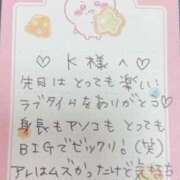 ♡ K様へ ♡
先日はとっても楽しい
ラブタイムをありがとう♡
身長もアソコもとっても
BIGでビックリ!(笑)
アレはムズかったけど気持ち